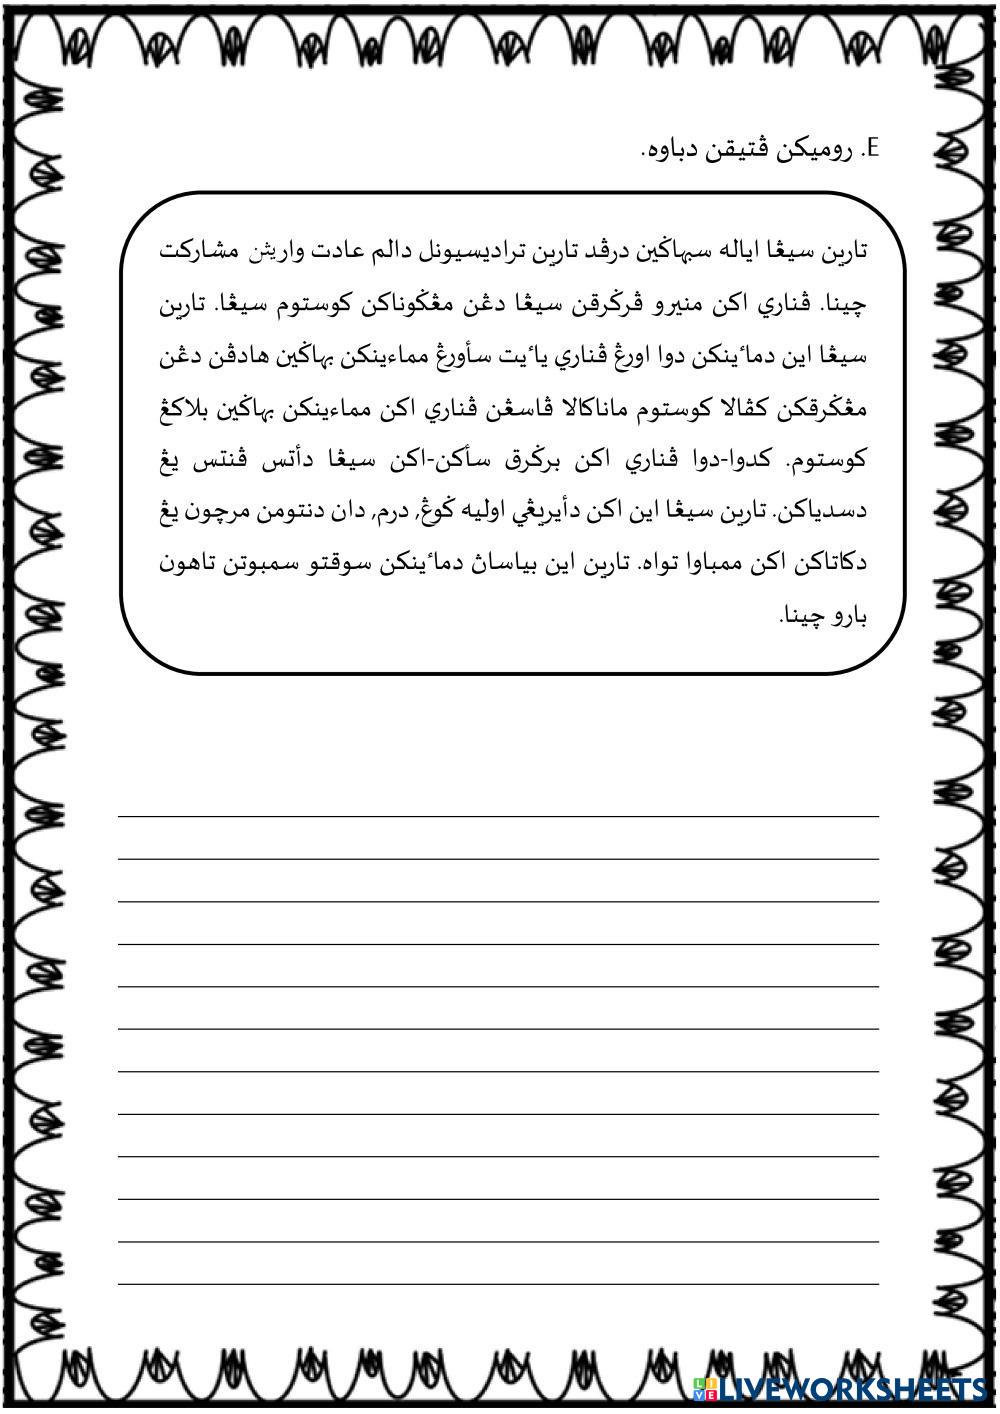 E. روميكن ڤتيقن دباوه.
تارين سيڠا اياله سبهاݢين درڤد تارين تراديسيونل دالم عادت واريثن مشاركت
چينا. ڤناري اكن منيرو ڤرݢرقن سيڠا دڠن مڠݢوناكن كوستوم سيڠا. تارين
سيڠا اين دماٴينكن دوا اورڠ ڤناري ياٴيت سأورڠ مماءينكن بهاݢين هادڤن دڠن
مڠݢرقكن كڤالا كوستوم ماناكالا ڤاسڠن ڤناري اكن مماءينكن بهاݢين بلاكڠ
كوستوم. كدوا-دوا ڤناري اكن برݢرق سأكن-اكن سيڠا دأتس ڤنتس يڠ
دسدياكن. تارين سيڠا اين اكن دأيريڠي اوليه ݢوڠ, درم, دان دنتومن مرچون يڠ
دكاتاكن اكن ممباوا تواه. تارين اين بياساڽ دماٴينكن سوقتو سمبوتن تاهون
بارو چينا.
LIVEWORKSHEETS